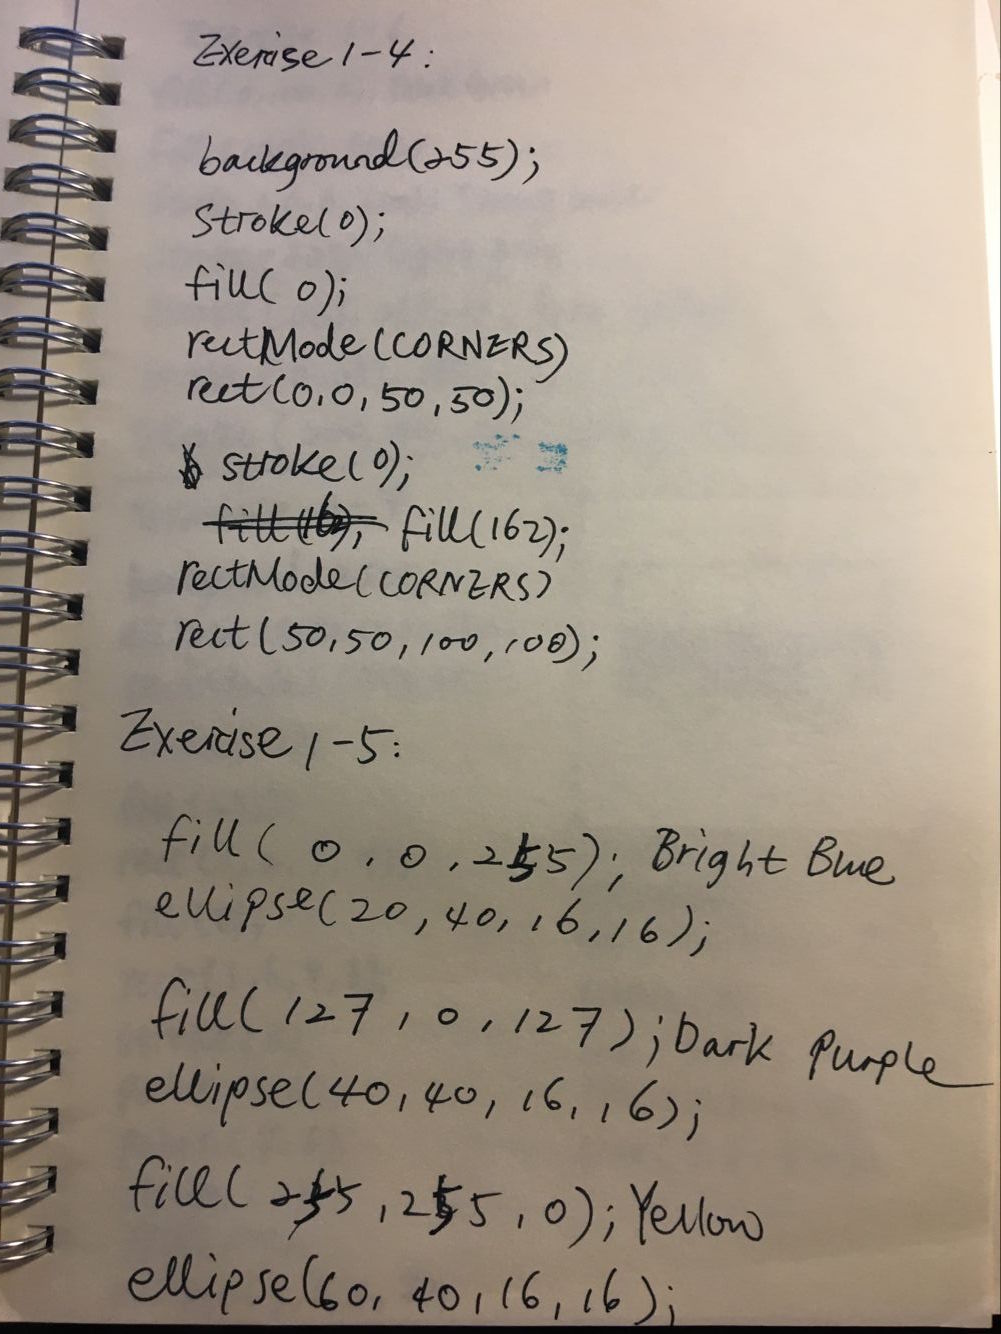 Exercise 1-4:
background(255);
Stroke(0);
fill( 0);
rectMode(CORNERS)
rect(0,0,50,50);
stroke(0);
fill(162);
rectMode(CORNERS)
rect(50,50,100,100);
Exercise 1-5:
fill( 0, 0, 255); Bright Blue
ellipse(20,40,16,16);
fill( 127, 0, 127); Dark Purple
ellipse(40,40,16,16);
fill( 255, 255, 0); Yellow
ellipse(60,40,16,16);